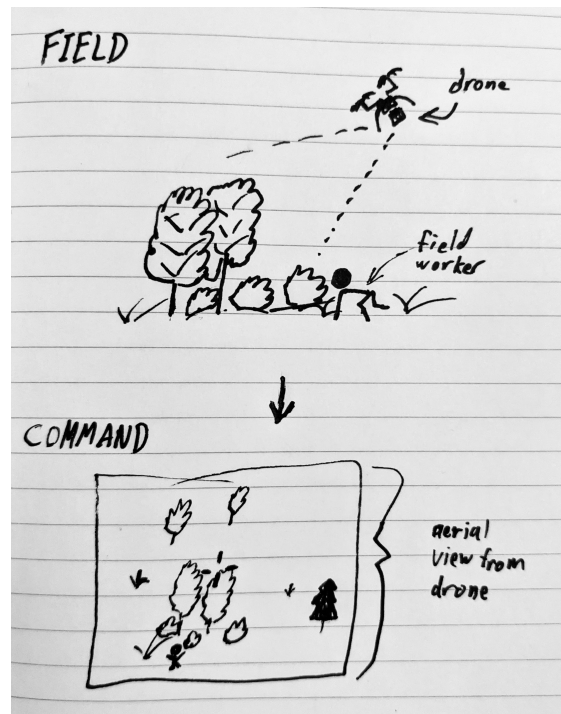 FIELD
drone
field
worker
COMMAND
aerial
view from
drone